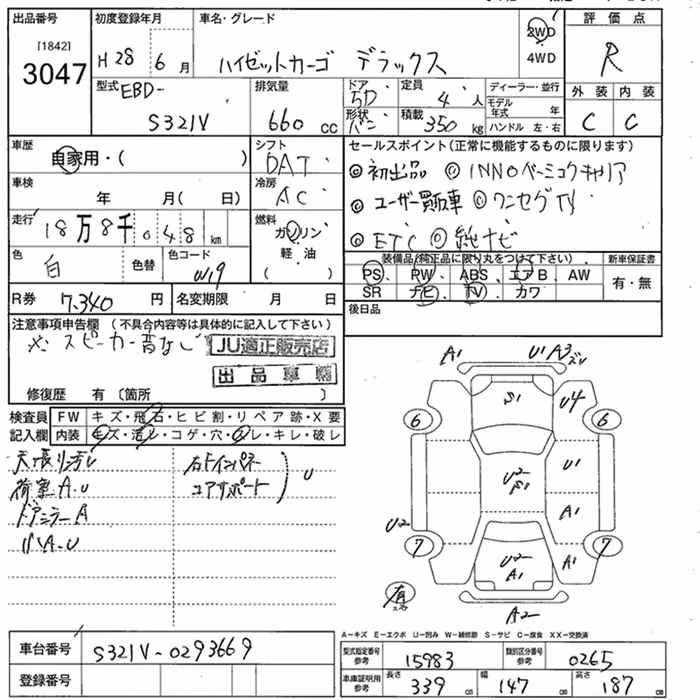 出品番号 初度登録年月 車名・グレード 評価点
[1842] 3047 H28年6月 ハイゼットカーゴ デラックス 2WD 4WD R
型式 EBD- S321V 排気量 660cc ドア 5D 形状 バン 定員 4人 積載 350kg ディーラー・並行 モデル年式 年 ハンドル 左・右 外装 C 内装 C
車歴 自家用・( ) シフト DAT セールスポイント(正常に機能するものに限ります)
◎初出品 ◎INNOベーシックキャリア
車検 年 月(日) 冷房 AC ◎ユーザー買取車 ◎ワンセグTV
走行 18万8千048km 燃料 ガソリン 軽油 ( ) ◎ETC ◎純正ナビ
色 白 色替 色コード W19
装備品(純正品に限り丸をつけて下さい) 新車保証書
PS PW ABS エアB AW 有・無
SR ナビ TV カワ
R券 7,340円 名変期限 月 日 後日品
注意事項申告欄 (不具合内容等は具体的に記入して下さい)
※スピーカー音なし JU適正販売店
出品車輌
修復歴 有 〔箇所 )
検査員記入欄 FW キズ・飛石・ヒビ割・リペア跡・X要
内装 キズ・汚レ・コゲ・穴・スレ・キレ・破レ
天張リ汚レ 右ドインパネ
荷室A.U エアサポート U
ドアミラーA
リバA.U
A1 U1 A3 ズレ
S1 U4
6 6
U2 S1 U1
A1
U2
7 7
U2 A1 A1
有 A2
A-キズ E-エクボ U-凹み W-補修跡 S-サビ C-腐食 XX-交換済
車台番号 S321V-0293669 型式指定番号 参考 15983 類別区分番号 参考 0265
登録番号 車庫証明用 参考 長さ 339 cm 幅 147 cm 高さ 187 cm